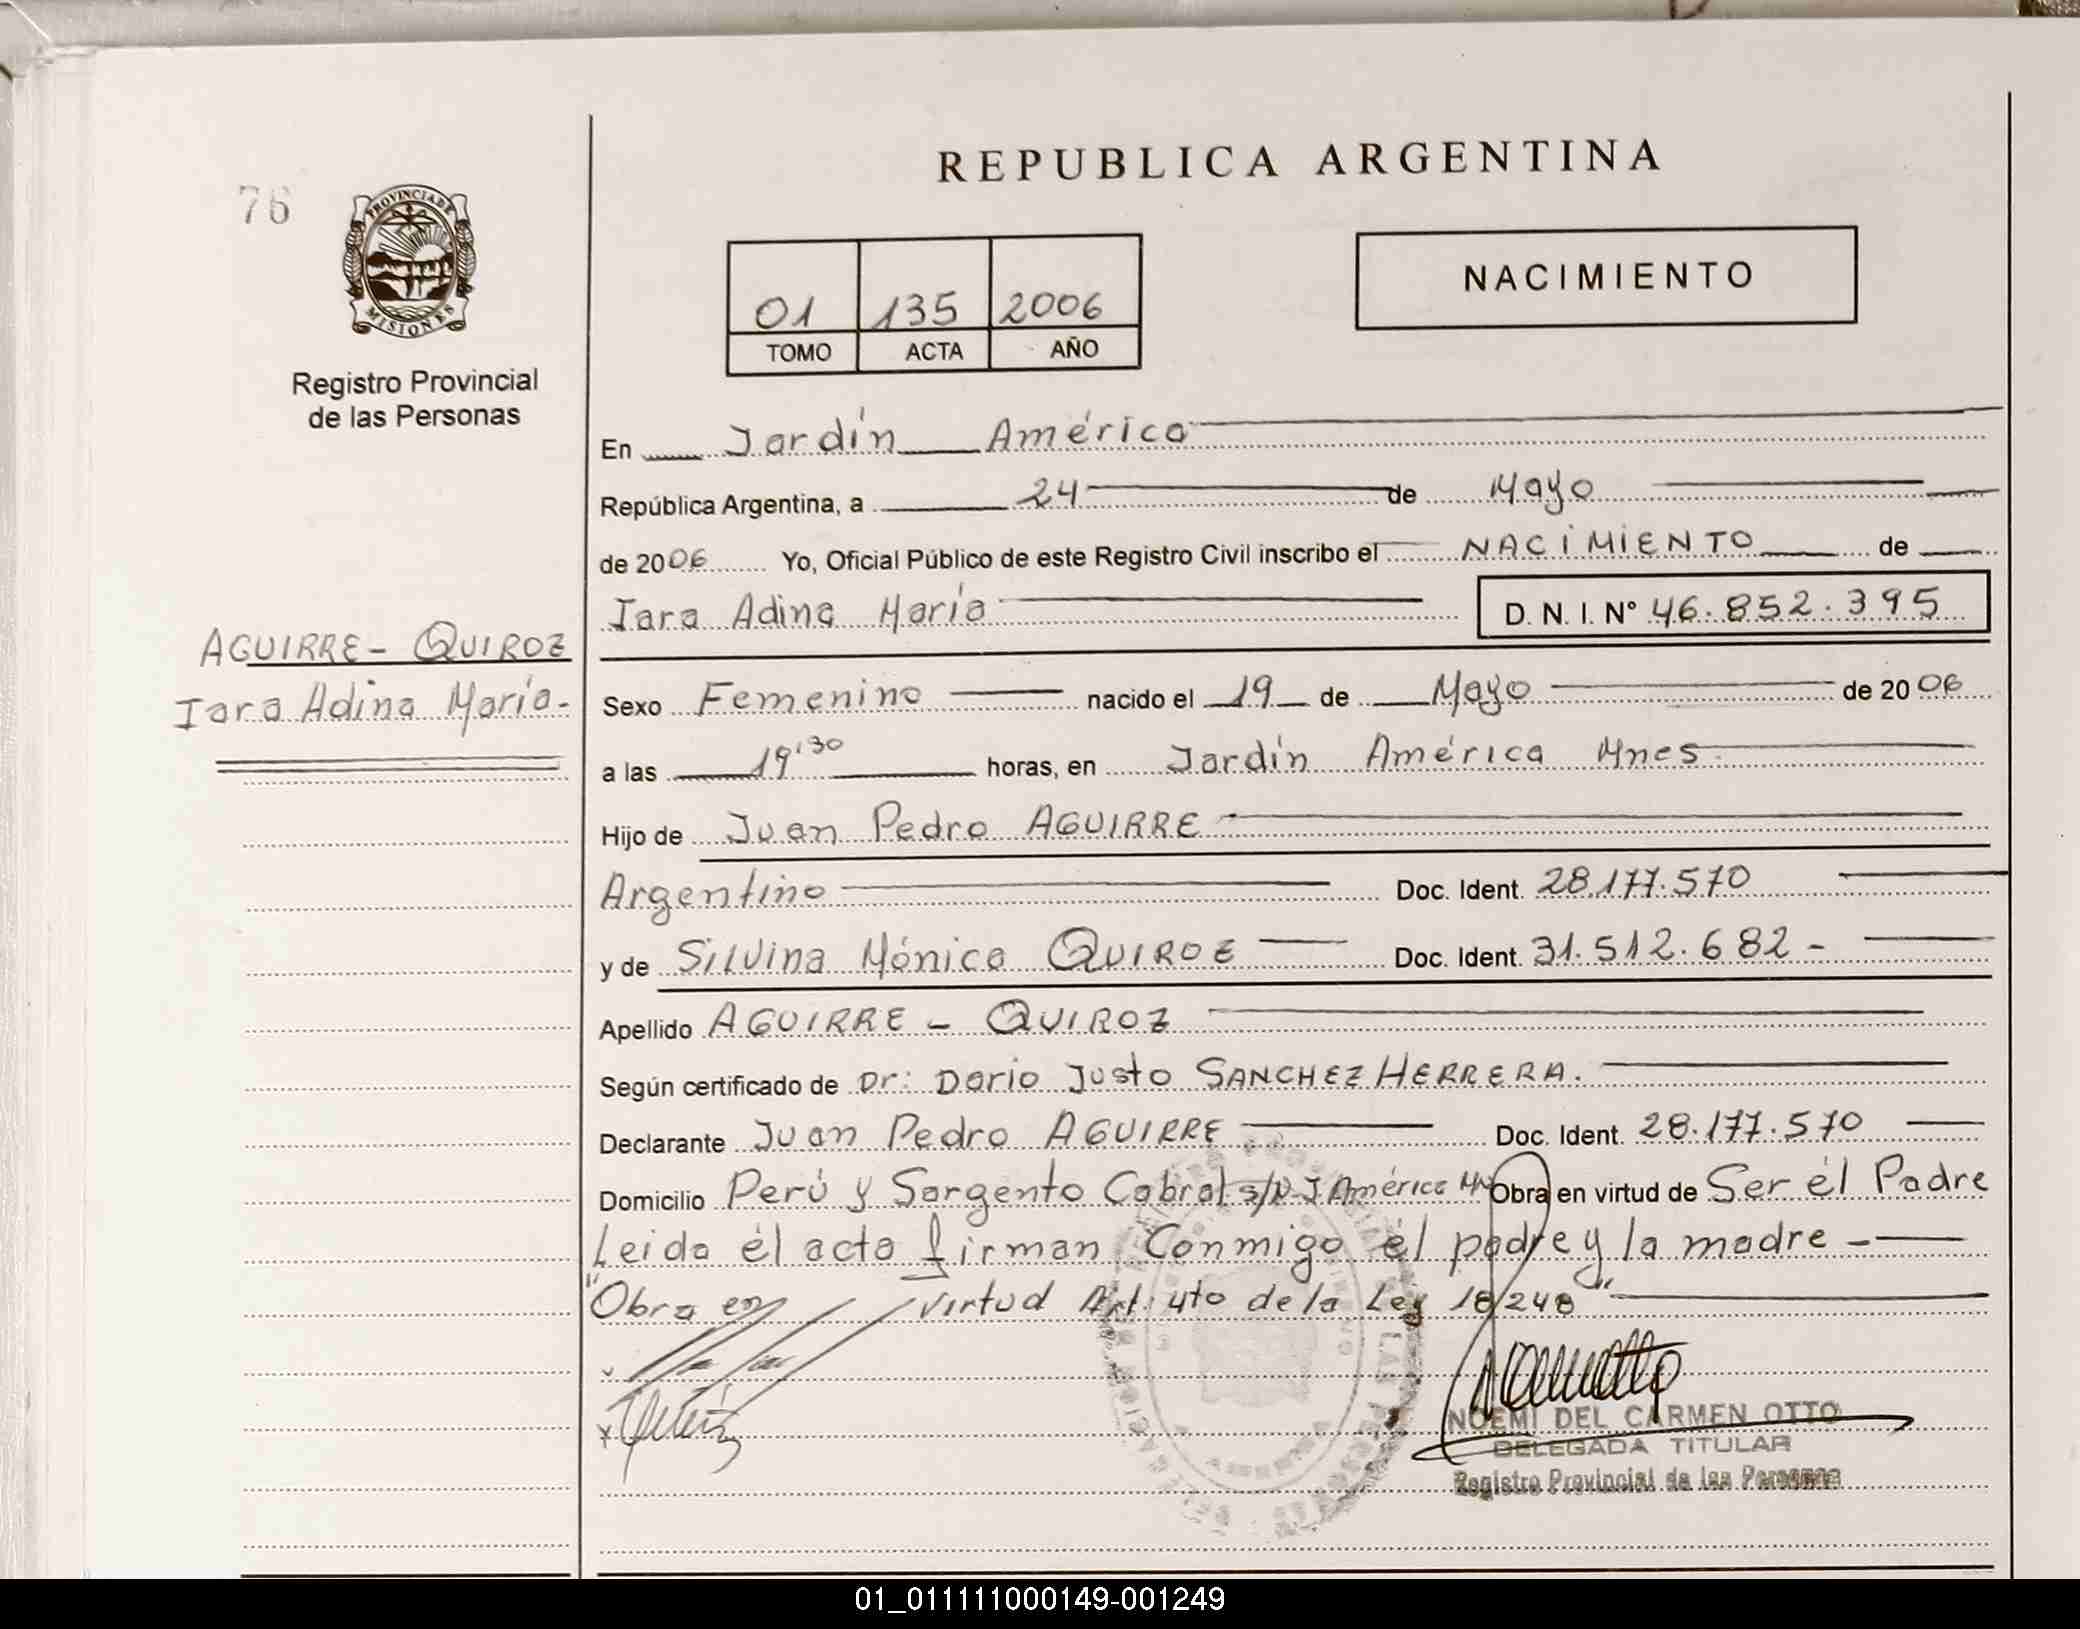 REPUBLICA ARGENTINA
76
PROVINCIA DE
MISIONES
Registro Provincial
de las Personas
01 135 2006
TOMO ACTA AÑO
NACIMIENTO
En Jardín América
República Argentina, a 24 de Mayo
de 2006 Yo, Oficial Público de este Registro Civil inscribo el NACIMIENTO de
Iara Adina María D. N. I. N° 46.852.395
AGUIRRE - QUIROZ
Iara Adina María.-
Sexo Femenino nacido el 19 de Mayo de 2006
a las 19'30 horas, en Jardín América Mnes.
Hijo de Juan Pedro AGUIRRE
Argentino Doc. Ident. 28.177.570
y de Silvina Mónica QUIROZ Doc. Ident. 31.512.682 -
Apellido AGUIRRE - QUIROZ
Según certificado de Dr: Dario Justo SANCHEZ HERRERA.
Declarante Juan Pedro AGUIRRE Doc. Ident. 28.177.570
Domicilio Perú y Sargento Cabral s/N J. América Obra en virtud de Ser él Padre
Leida él acta firman Conmigo él padre y la madre -
"Obra en virtud Art. 4to de la Ley 18248"
NOEMI DEL CARMEN OTTO
DELEGADA TITULAR
Registro Provincial de las Personas
01_011111000149-001249